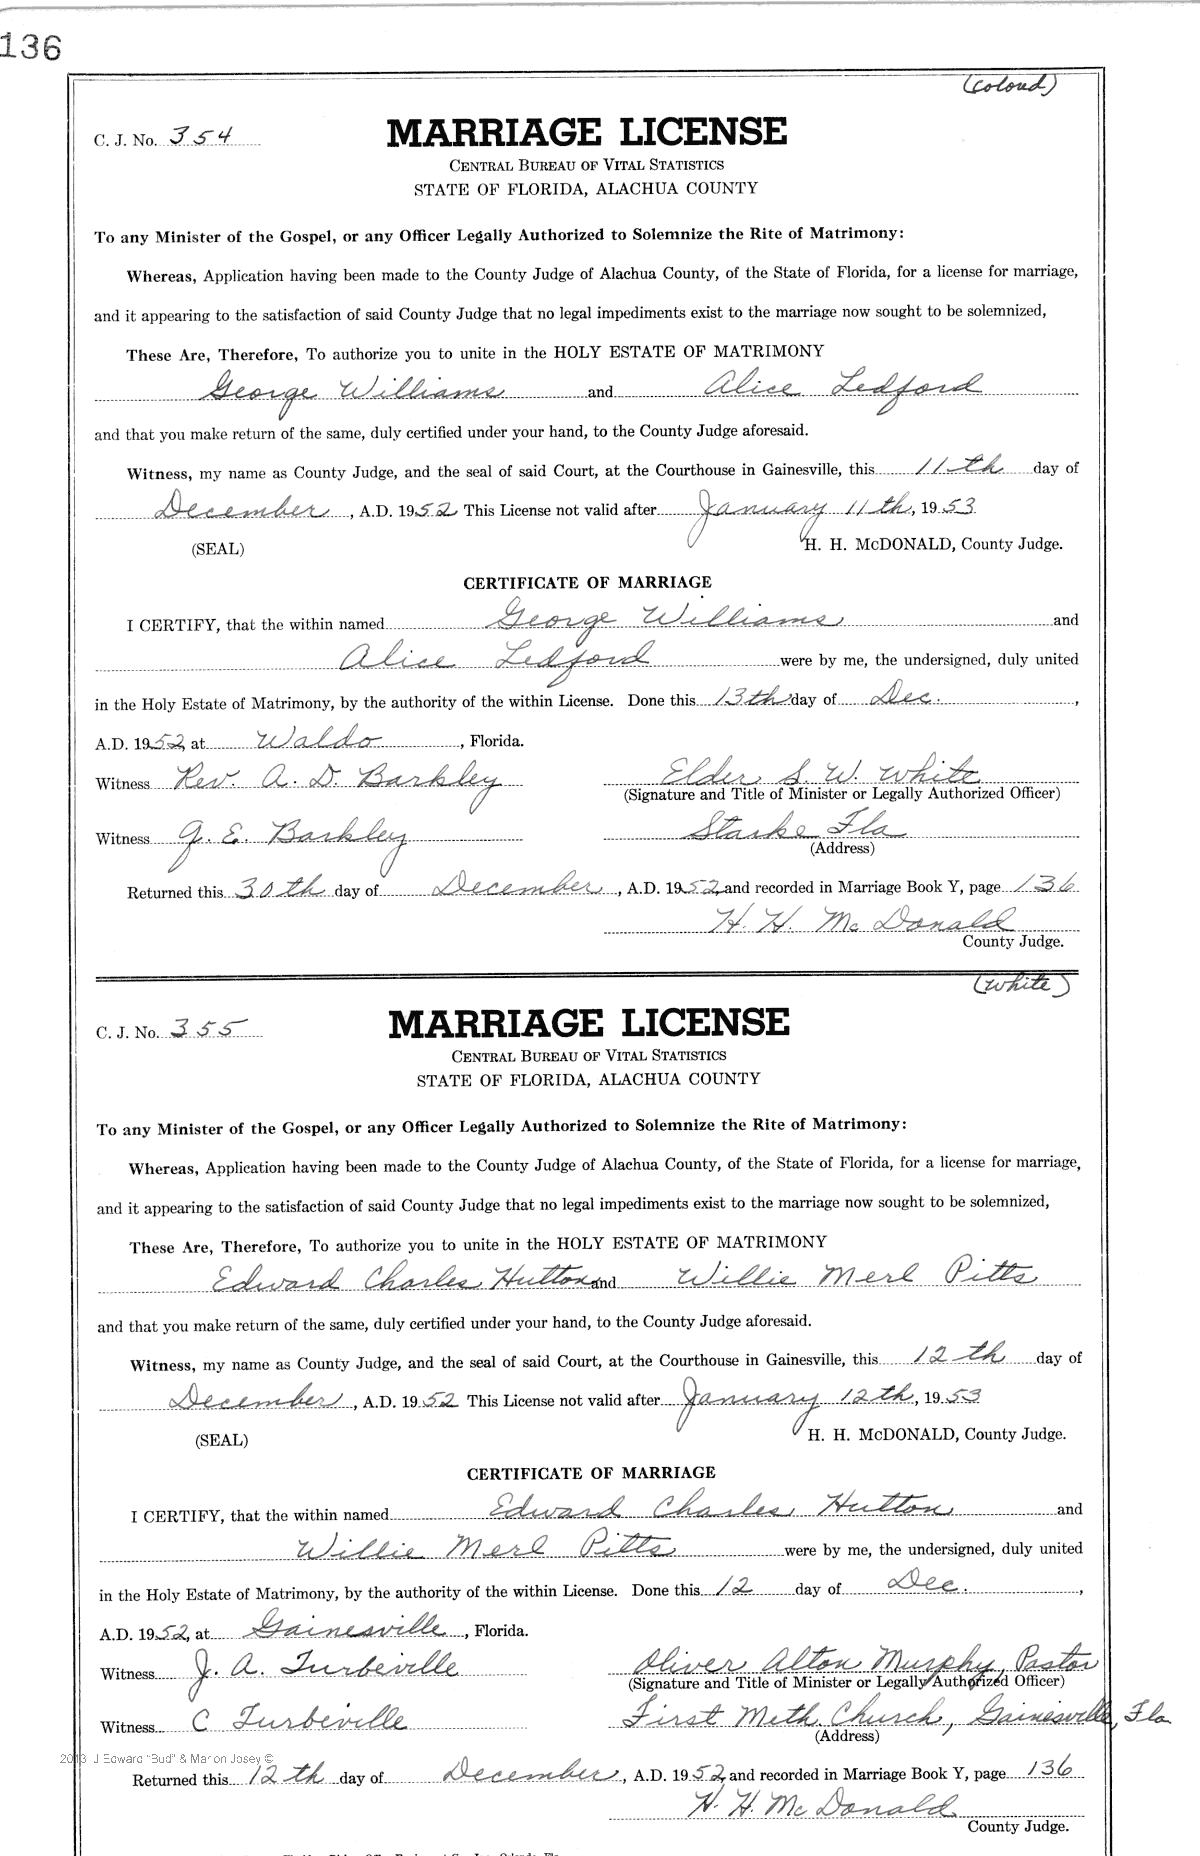 136
(Colord)
C. J. No. 354
MARRIAGE LICENSE
CENTRAL BUREAU OF VITAL STATISTICS
STATE OF FLORIDA, ALACHUA COUNTY
To any Minister of the Gospel, or any Officer Legally Authorized to Solemnize the Rite of Matrimony:
Whereas, Application having been made to the County Judge of Alachua County, of the State of Florida, for a license for marriage,
and it appearing to the satisfaction of said County Judge that no legal impediments exist to the marriage now sought to be solemnized,
These Are, Therefore, To authorize you to unite in the HOLY ESTATE OF MATRIMONY
George Williams and Alice Ledford
and that you make return of the same, duly certified under your hand, to the County Judge aforesaid.
Witness, my name as County Judge, and the seal of said Court, at the Courthouse in Gainesville, this 11th day of
December, A.D. 1952 This License not valid after January 11th, 1953
(SEAL) H. H. McDONALD, County Judge.
CERTIFICATE OF MARRIAGE
I CERTIFY, that the within named George Williams and
Alice Ledford were by me, the undersigned, duly united
in the Holy Estate of Matrimony, by the authority of the within License. Done this 13th day of Dec.,
A.D. 1952, at Waldo, Florida.
Witness Rev. A. D. Barkley Elder S. W. White
(Signature and Title of Minister or Legally Authorized Officer)
Witness G. E. Barkley Starke Fla
(Address)
Returned this 30th day of December, A.D. 1952, and recorded in Marriage Book Y, page 136
H. H. McDonald
County Judge.
(White)
C. J. No. 355
MARRIAGE LICENSE
CENTRAL BUREAU OF VITAL STATISTICS
STATE OF FLORIDA, ALACHUA COUNTY
To any Minister of the Gospel, or any Officer Legally Authorized to Solemnize the Rite of Matrimony:
Whereas, Application having been made to the County Judge of Alachua County, of the State of Florida, for a license for marriage,
and it appearing to the satisfaction of said County Judge that no legal impediments exist to the marriage now sought to be solemnized,
These Are, Therefore, To authorize you to unite in the HOLY ESTATE OF MATRIMONY
Edward Charles Hutton and Willie Merl Pitts
and that you make return of the same, duly certified under your hand, to the County Judge aforesaid.
Witness, my name as County Judge, and the seal of said Court, at the Courthouse in Gainesville, this 12th day of
December, A.D. 1952 This License not valid after January 12th, 1953
(SEAL) H. H. McDONALD, County Judge.
CERTIFICATE OF MARRIAGE
I CERTIFY, that the within named Edward Charles Hutton and
Willie Merl Pitts were by me, the undersigned, duly united
in the Holy Estate of Matrimony, by the authority of the within License. Done this 12 day of Dec.,
A.D. 1952, at Gainesville, Florida.
Witness J. A. Turbeville Oliver Alton Murphy, Pastor
(Signature and Title of Minister or Legally Authorized Officer)
Witness C Turbeville First Meth. Church, Gainesville, Fla.
(Address)
2013 J Edward "Bud" & Marion Josey ©
Returned this 12th day of December, A.D. 1952, and recorded in Marriage Book Y, page 136
H. H. McDonald
County Judge.